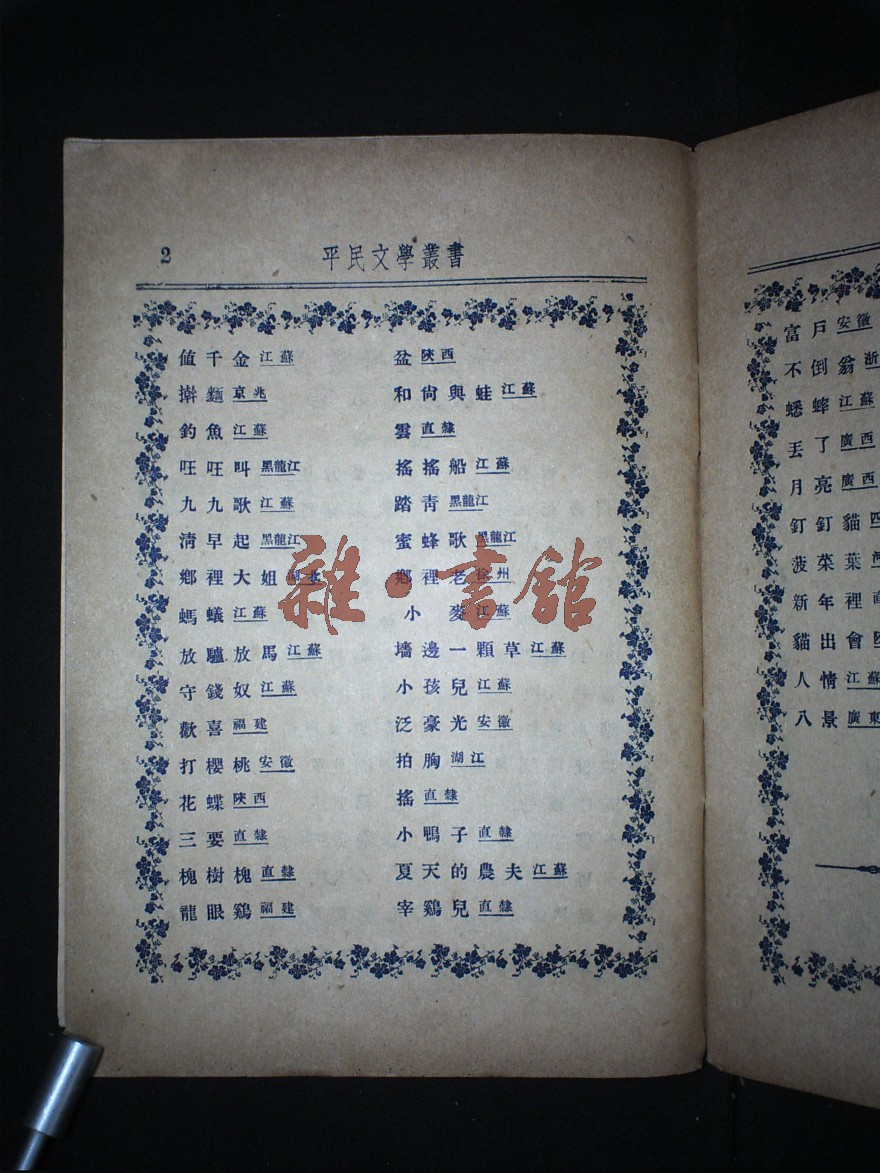 2
平民文學叢書
値千金 江蘇
擀麵 京兆
釣魚 江蘇
旺旺叫 黑龍江
九九歌 江蘇
淸早起 黑龍江
鄉裡大姐 河北
螞蟻 江蘇
放驢放馬 江蘇
守錢奴 江蘇
歡喜 福建
打櫻桃 安徽
花蝶 陝西
三要 直隸
槐樹槐 直隸
龍眼鷄 福建
盆 陝西
和尙與蛙 江蘇
雲 直隸
搖搖船 江蘇
踏靑 黑龍江
蜜蜂歌 黑龍江
鄉裡老 徐州
小麥 江蘇
墻邊一顆草 江蘇
小孩兒 江蘇
泛豪光 安徽
拍胸 湖江
搖 直隸
小鴨子 直隸
夏天的農夫 江蘇
宰鷄兒 直隸
富戶 安徽
不倒翁 浙
蟋蟀 江蘇
丟了 廣西
月亮 廣西
釘釘貓
菠菜葉
新年裡
貓出會
人情 江蘇
八景 廣東
雜·書館